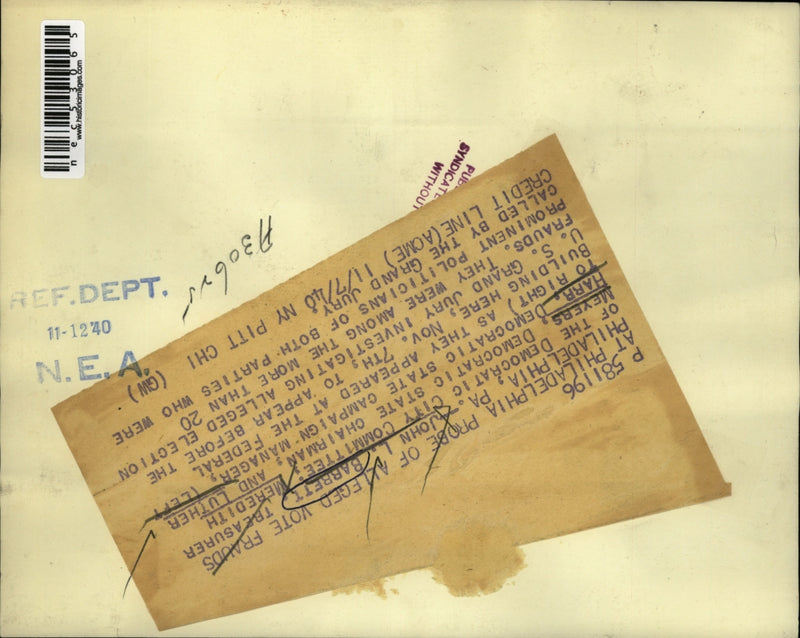 nec53065
www.historicimages.com
PUB
SYNDICATE
WITHOUT
A306VS
REF. DEPT.
11-12'40
N.E.A.
P 581196
PROBE OF ALLEGED VOTE FRAUDS
AT PHILADELPHIA
PHILADELPHIA, PA. JOHN L. BARRETT, TREASURER
OF THE DEMOCRATIC CITY COMMITTEE, MEREDITH
MEYERS DEMOCRATIC STATE CHAIRMAN, AND LUTHER
HARR, DEMOCRATIC STATE CAMPAIGN MANAGER, (LEFT
TO RIGHT) AS THEY APPEARED AT FEDERAL
BUILDING HERE, NOV. 7TH, TO APPEAR BEFORE THE
U. S. GRAND JURY INVESTIGATING ALLEGED ELECTION
FRAUDS. THEY WERE AMONG THE MORE THAN 20
PROMINENT POLITICIANS OF BOTH PARTIES WHO WERE
CALLED BY THE GRAND JURY
CREDIT LINE (ACME) 11/7/40 NY PITT CHI (GW)